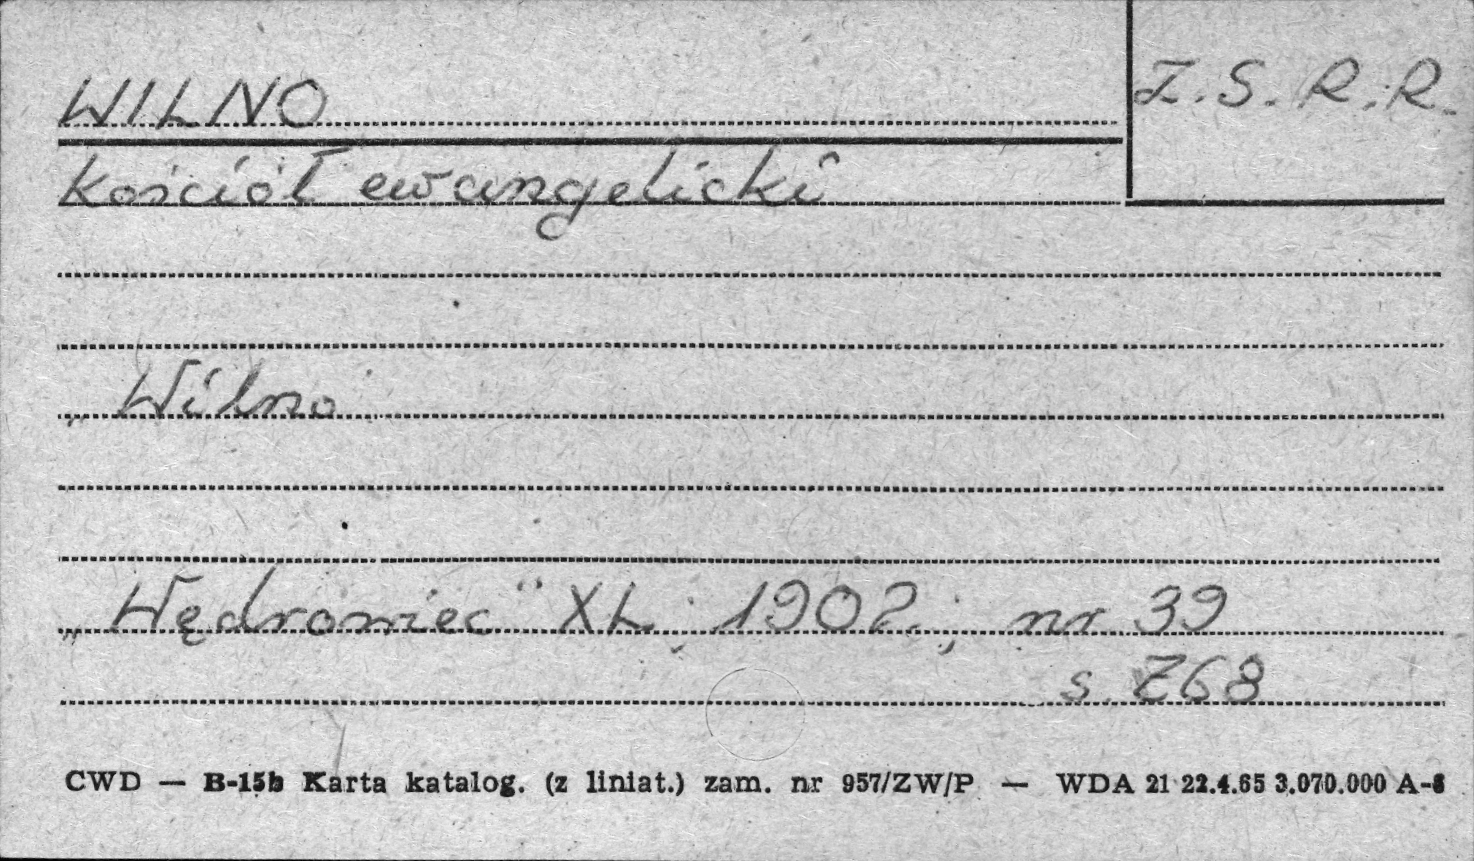 WILNO
Z.S.R.R.
Kościół ewangelicki
„Wilno
„Wędrowiec" XL; 1902.; nr 39
s. 768
CWD — B-15b Karta katalog. (z liniat.) zam. nr 957/ZW/P — WDA 21 22.4.65 3.070.000 A-6